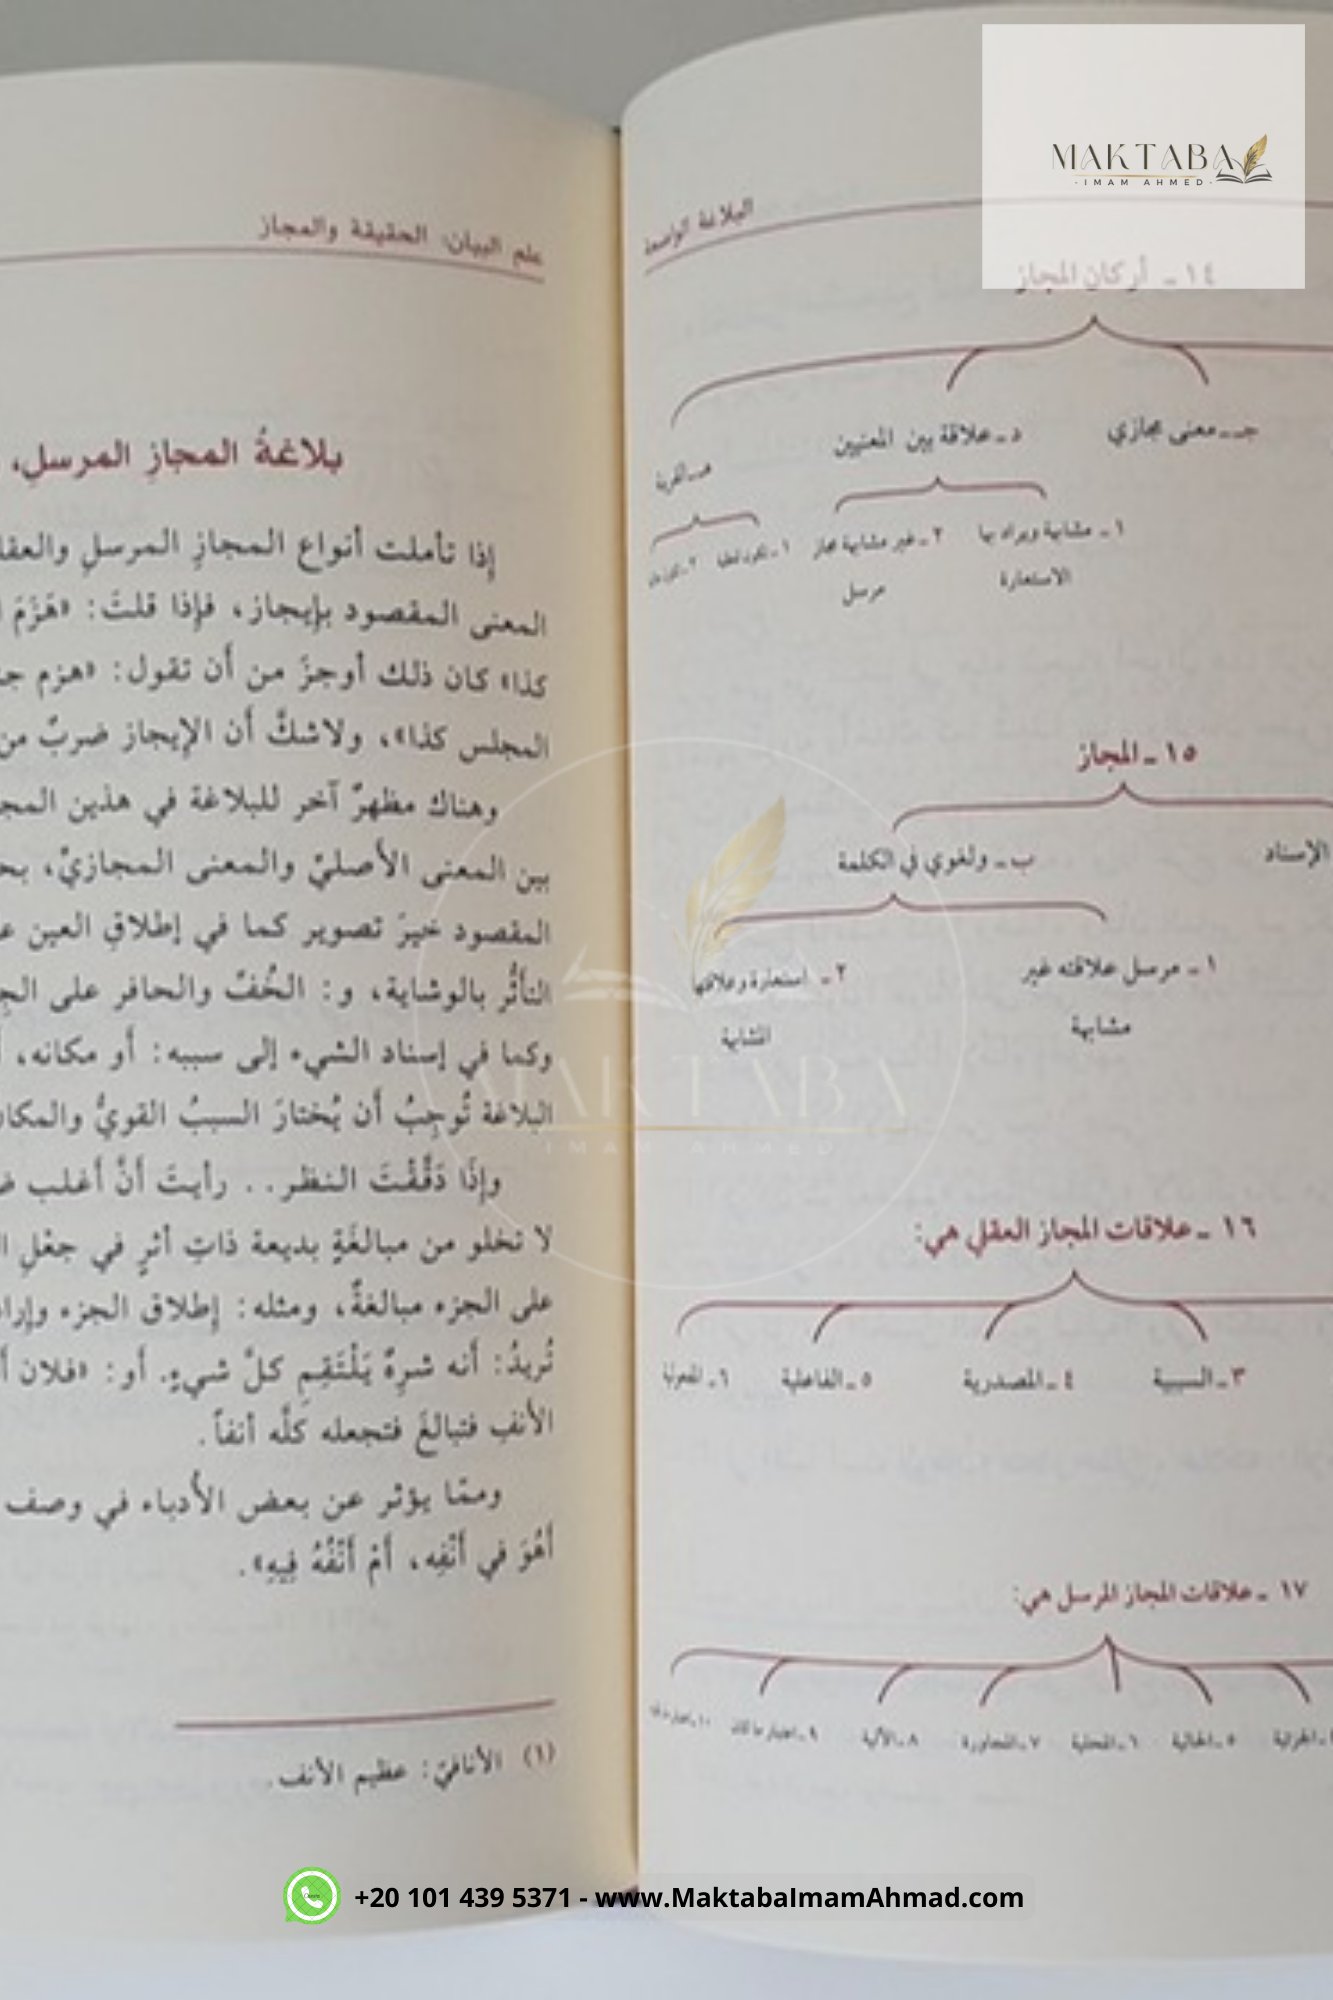 MAKTABA
- IMAM AHMED -
البلاغة الواضحة
١٤ ـ أركان المجاز
جـ ـ معنى مجازي
د ـ علاقة بين المعنيين
هـ ـ القرينة
١ ـ مشابهة ويراد بها
الاستعارة
٢ ـ غير مشابهة مجاز
مرسل
١ ـ تكون لفظية
٢ ـ تكون
١٥ ـ المجاز
الإسناد
ب ـ ولغوي في الكلمة
١ ـ مرسل علاقته غير
مشابهة
٢ ـ استعارة وعلاقتها
المشابهة
١٦ ـ علاقات المجاز العقلي هي:
٣ ـ السببية
٤ ـ المصدرية
٥ ـ الفاعلية
٦ ـ المفعولية
١٧ ـ علاقات المجاز المرسل هي:
الجزئية
٥ ـ الحالية
٦ ـ المحلية
٧ ـ المجاورة
٨ ـ الآلية
٩ ـ اعتبار ما كان
١٠ ـ اعتبار ما
علم البيان: الحقيقة والمجاز
بلاغةُ المجازِ المرسلِ،
إذا تأملت أنواع المجازِ المرسلِ
المعنى المقصود بإيجاز، فإذا قلتَ: «هَزَمَ
كذا» كان ذلك أوجزَ من أَن تقول: «هزم
المجلس كذا»، ولاشكَّ أَن الإيجاز ضربٌ من
وهناك مظهرٌ آخر للبلاغة في هذين
بين المعنى الأصليِّ والمعنى المجازيِّ،
المقصود خيرَ تصوير كما في إطلاقِ العين
التأثُّر بالوشاية، و: الخُفِّ والحافر على
وكما في إسناد الشيء إلى سببه: أَو مكانه،
البلاغة تُوجِبُ أَن يُختارَ السببُ القويُّ
وإذَا دَقَّقْتَ النظر.. رأيتَ أَنَّ أَغلب
لا تخلو من مبالغَةٍ بديعة ذاتِ أثرٍ في جعْلِ
على الجزء مبالغةٌ، ومثله: إطلاق الجزء
تُريدُ: أَنه شرِهٌ يَلْتَقِمِ كلَّ شيءٍ. أَو: «فلان
الأنفِ فتبالغَ فتجعله كلَّه أنفاً.
وممَّا يؤثر عن بعض الأدباء في وصف
أَهُوَ في أَنْفِه، أَمْ أَنْفُهُ فِيهِ».
(١) الأنافيّ: عظيم الأنف.
MAKTABA
IMAM AHMED
+20 101 439 5371 - www.MaktabaImamAhmad.com